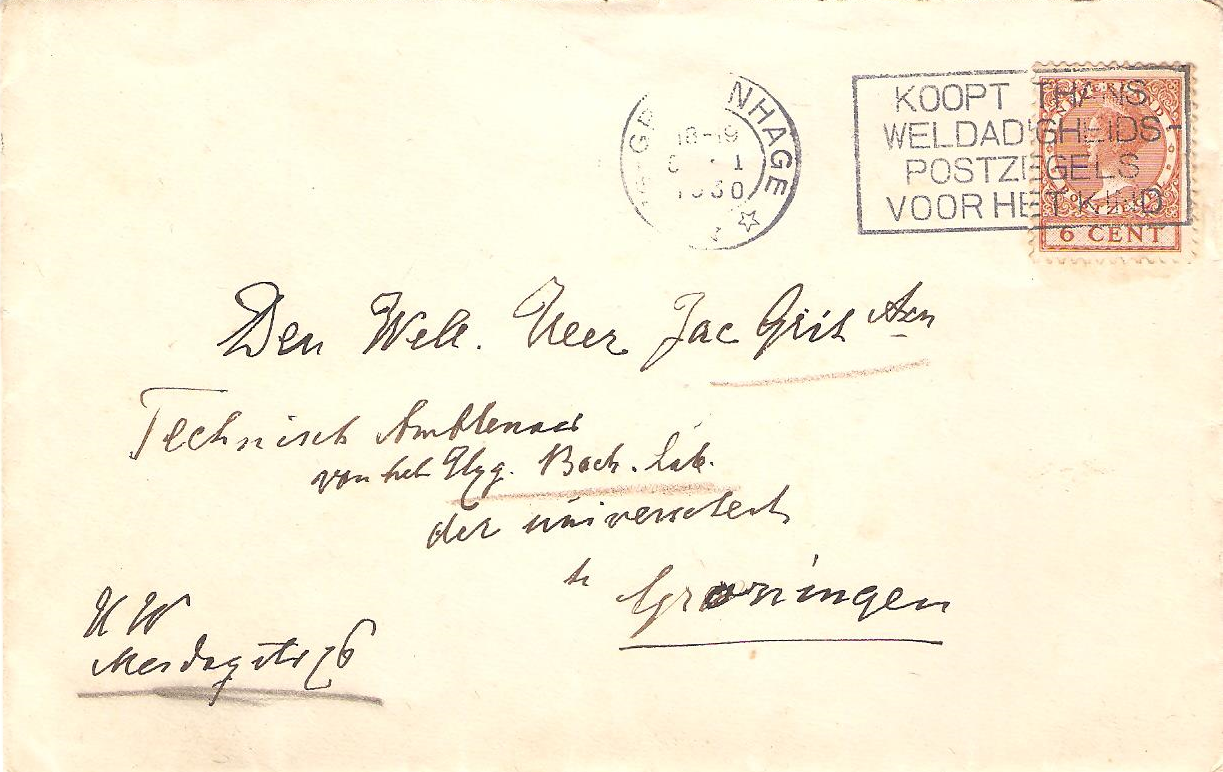 'S-GR NHAGE
18-19
1
1930
KOOPT THANS
WELDADIGHEIDS-
POSTZIEGELS
VOOR HET KIND
NEDERLAND
6 CENT
Den Wele. Heer Jac Grit Azn
Technisch Ambtenaar
van het Hyg. Bact. Lab.
der universiteit
te Groningen
H W
Mesdagstr 76